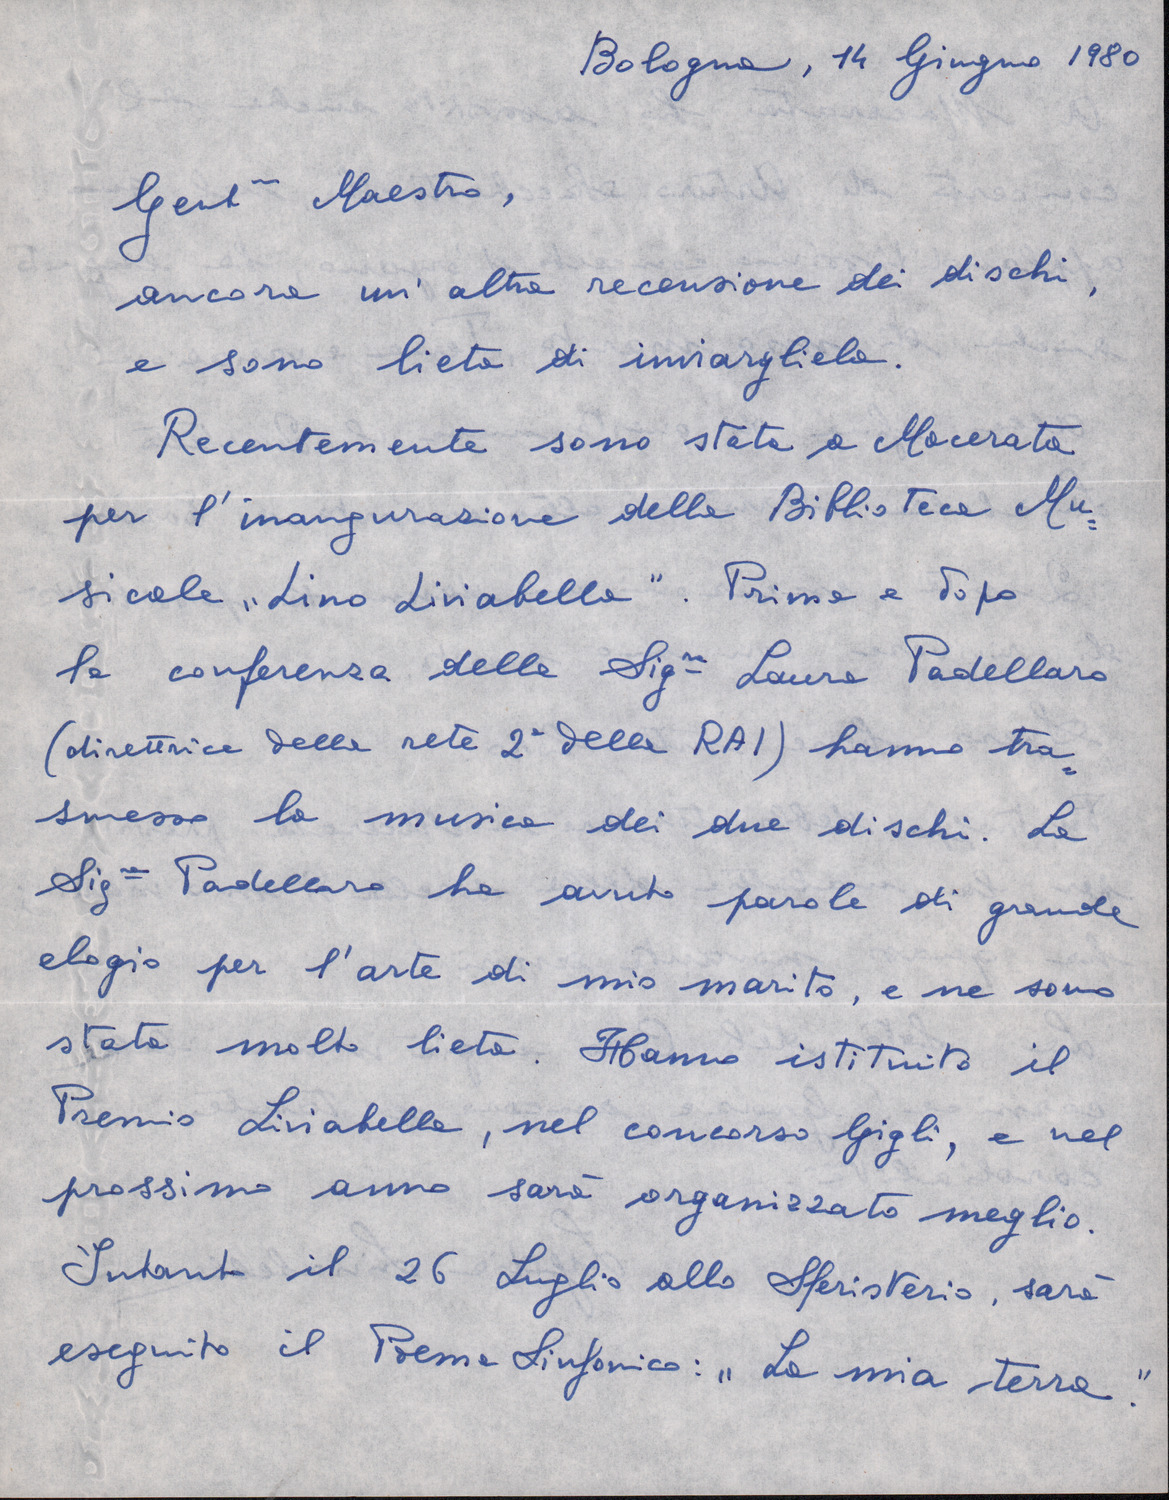 Bologna, 14 Giugno 1980
Gent.mo Maestro,
ancora un'altra recensione dei dischi,
e sono lieta di inviargliela.
Recentemente sono stata a Macerata
per l'inaugurazione della Biblioteca Mu=
sicale „Lino Liviabella". Prima e dopo
la conferenza della Sig.ra Laura Padellaro
(direttrice della rete 2ª della RAI) hanno tra=
smesso la musica dei due dischi. La
Sig.ra Padellaro ha avuto parole di grande
elogio per l'arte di mio marito, e ne sono
stata molto lieta. Hanno istituito il
Premio Liviabella, nel concorso Gigli, e nel
prossimo anno sarà organizzato meglio.
Intanto il 26 Luglio allo Sferisterio, sarà
eseguito il Poema Sinfonico: „La mia terra".